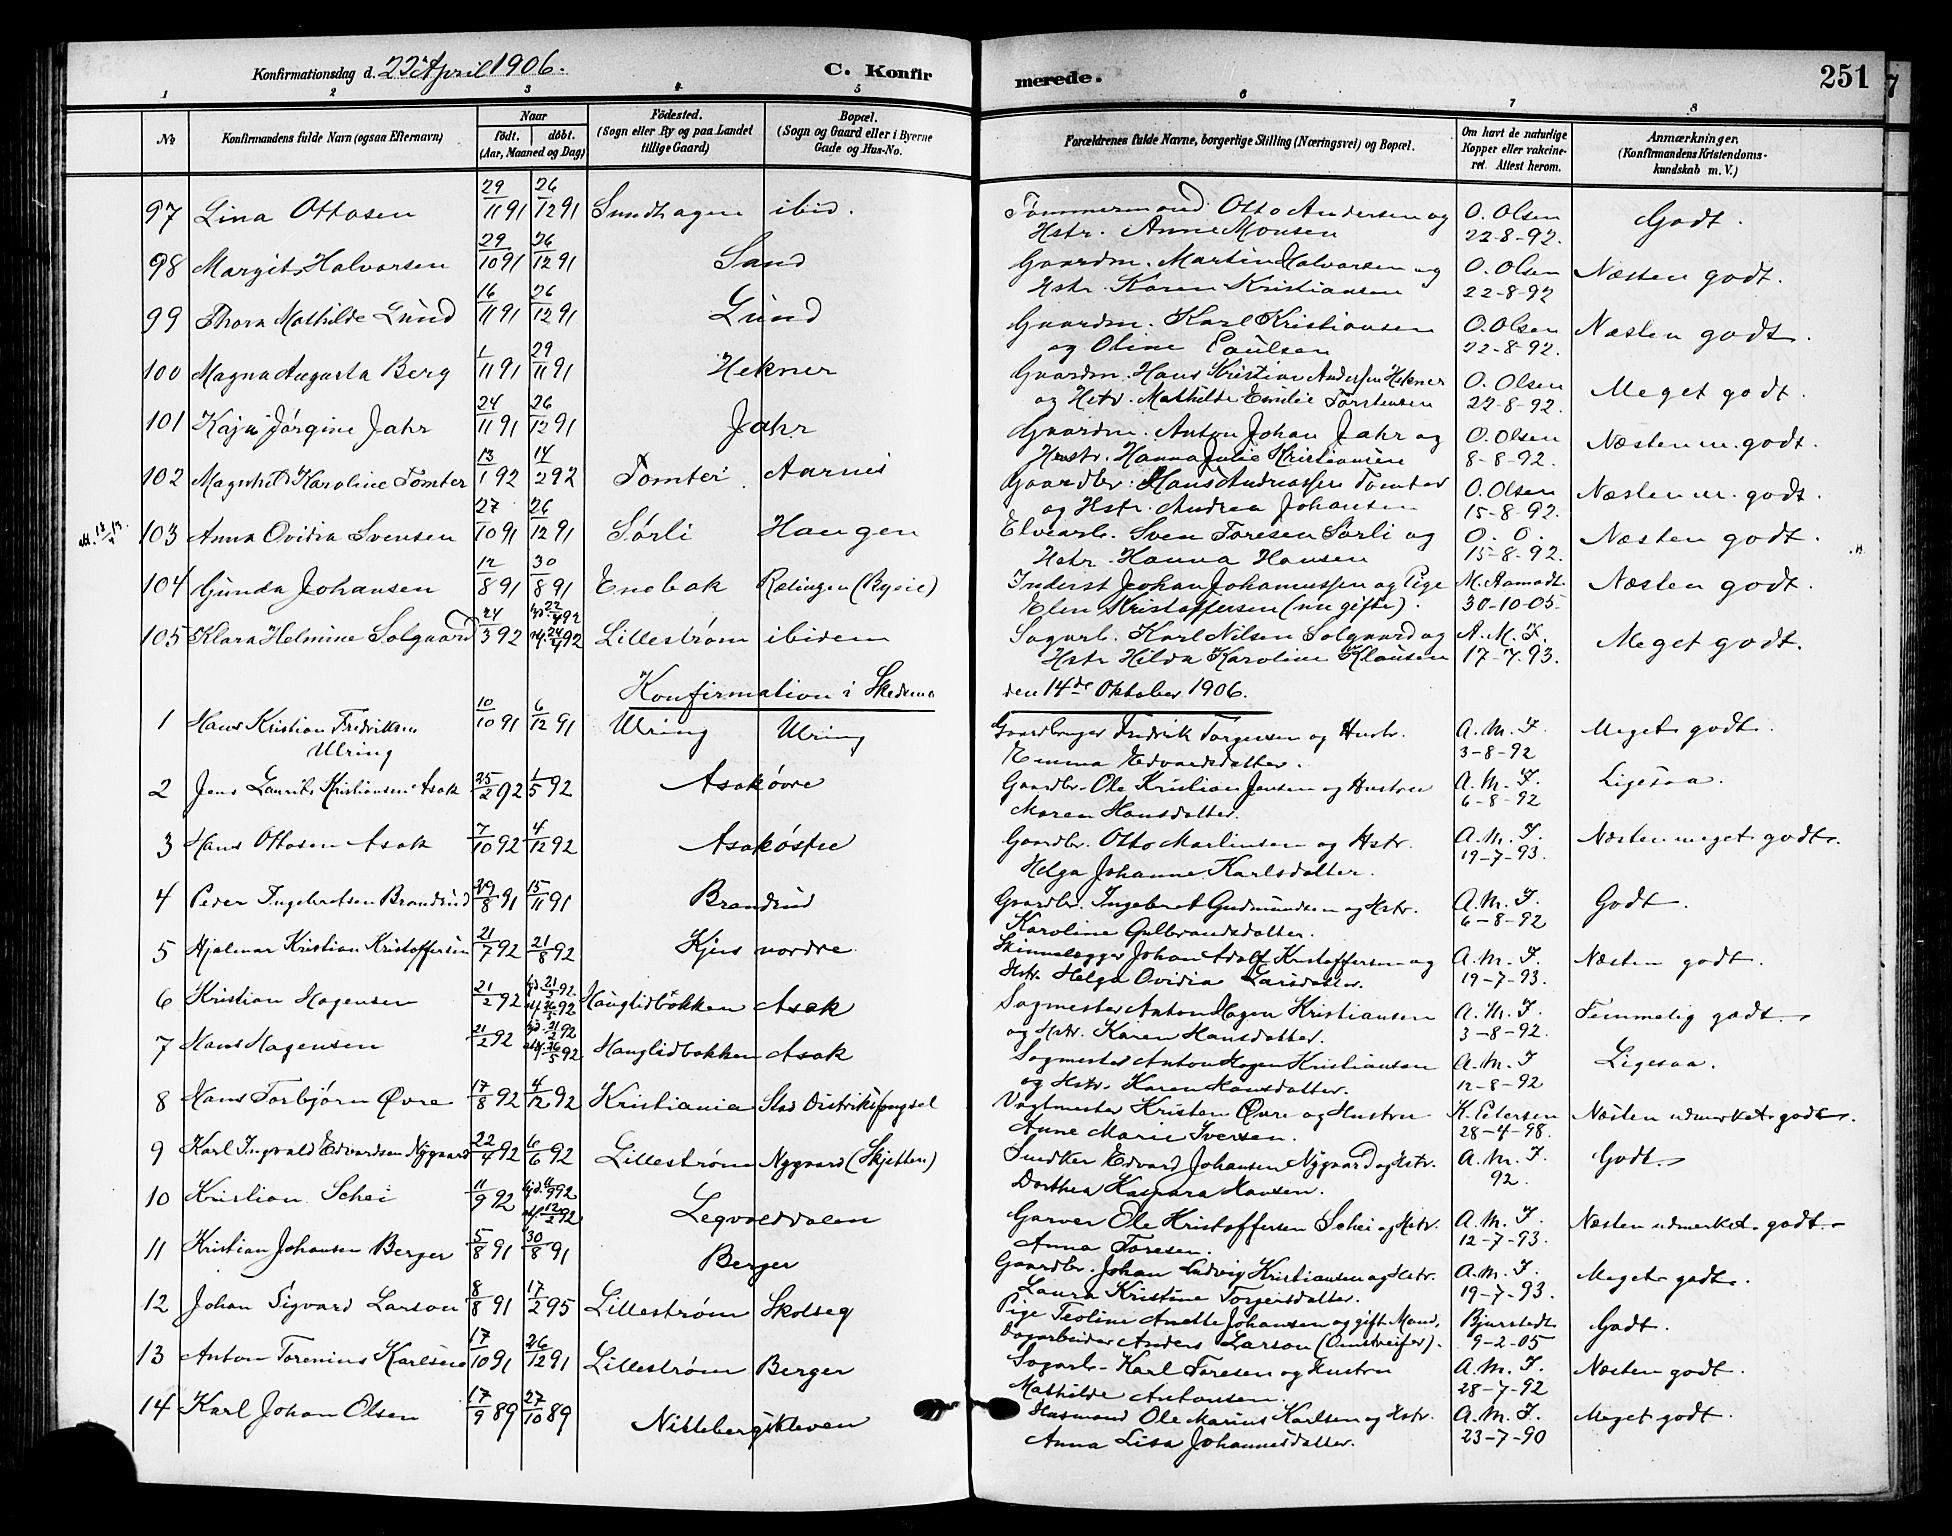 Konfirmationsdag d. 22 April 1906. C. Konfirmerede. 251
1 2 3 4 5 6 7 8
№ Konfirmandens fulde Navn (ogsaa Efternavn) Naar født. døbt. (Aar, Maaned og Dag) Fødested. (Sogn eller By og paa Landet tillige Gaard) Bopæl. (Sogn og Gaard eller i Byerne Gade og Hus-No. Forældrenes fulde Navne, borgerlige Stilling (Næringsvei) og Bopæl. Om havt de naturlige Kopper eller vakcineret. Attest herom. Anmærkninger. (Konfirmandens Kristendomskundskab m. V.)
97 Lina Ottosen 29/11 91 26/12 91 Sundhagen ibid. Tømmermand Otto Andersen og O. Olsen Godt.
Hstr. Anne Monsen 22-8-92.
98 Margit Halvorsen 29/10 91 26/12 91 Sand Gaardm. Martin Halvorsen og O. Olsen Næsten godt.
Hstr. Karen Kristiansen 22-8-92
99 Thora Mathilde Lund 16/11 91 26/12 91 Lund Gaardm. Karl Kristiansen O. Olsen Næsten godt.
og Oline Paulsen 22-8-92.
100 Magna Augusta Berg 1/11 91 29/11 91 Hekner Gaardm. Hans Kristian Andersen Hekner O. Olsen Meget godt.
og Hstr. Mathilde Emilie Torstensen 22-8-92.
101 Kaja Jørgine Jahr 24/11 91 26/12 91 Jahr Gaardm. Anton Johan Jahr og O. Olsen Næsten m. godt.
Hustr. Hanna Julie Kristiansen 8-8-92.
102 Magnhild Karoline Tomter 13/1 92 14/2 92 Tomter Aarnes Gaardbr. Hans Andreassen Tomter O. Olsen Næsten m. godt.
og Hstr. Andrea Johansen 15-8-92.
103 Anna Ovidia Svensen 27/10 91 26/12 91 Sørli Haugen Elvearb. Sven Toresen Sørli og O. O. Næsten godt.
Hstr. Hanna Hansen 15-8-92.
104 Gunda Johansen 12/8 91 30/8 91 Enebak Rælingen (Byeie) Inderst Johan Johannessen og Pige M. Aamodt. Næsten godt.
Elen Kristoffersen (nu gifte). 30-10-05.
105 Klara Helmine Solgaard 24/3 92 22/4 92 24/4 92 Lillestrøm ibidem Sagarb. Karl Nilsen Solgaard og A. M. F. Meget godt.
Hstr Hilda Karoline Klausen 17-7.93.
Konfirmation i Skedsmo den 14de Oktober 1906.
1 Hans Kristian Fredriksen 10/10 91 6/12 91 Ulring Ulring Gaardbruger Fredrik Torgersen og Hustr. A. M. F. Meget godt.
Ulring Emma Edvardsdatter. 3-8-92
2 Jens Laurits Kristiansen Asak 25/2 92 1/5 92 Asak øvre Gaardbr. Ole Kristian Jensen og Hustru A. M. F. Ligesaa.
Maren Hansdatter. 6-8-92
3 Hans Ottosen Asak 7/10 92 4/12 92 Asak østre Gaardbr. Otto Martinsen og Hstr. A. M. F. Næsten meget godt.
Helga Johanne Karlsdatter. 19-7-93.
4 Peder Ingebretsen Brandrud 29/8 91 15/11 91 Brandrud Gaardbr. Ingebret Gudmundsen og Hstr. A. M. F. Godt.
Karoline Gulbrandsdatter. 6-8-92
5 Hjalmar Kristian Kristoffersen 21/7 92 21/8 92 Kjus nordre Skinnelægger Johan Adolf Kristoffersen og A. M. F. Næsten godt.
Hstr. Helga Ovidia Larsdatter. 19-7-93.
6 Kristian Hagensen 21/2 92 21/2 92. 26/5 92 Hauglidbakken Asak Sagmester Anton Hagen Kristiansen A. M. F. Temmelig godt.
og Hstr. Karen Hansdatter. 3-8-92.
7 Hans Hagensen 21/2 92 21/2 92 26/5 92 Hauglidbakken Asak Sagmester Anton Hagen Kristiansen A. M. F Ligesaa.
og Hstr. Karen Hansdatter. 12-8-92
8 Hans Torbjørn Øvre 17/8 92 4/12 92 Kristiania Slas Distriktsfængsel Vagtmester Kristen Øvre og Hustru K. Petersen Næsten udmerket godt.
Anne Marie Iversen. 28-4-98.
9 Karl Ingvald Edvardsen Nygaard 22/4 92 6/6 92 Lillestrøm Nygaard (Skjetten) Snedker Edvard Johansen Nygaard og Hstr. A. M. F. Godt.
Dorthea Kaspara Hansen. 92.
10 Kristian Schei 11/9 92 11/9 92 12/2 92 Leqvolddalen Garver Ole Kristoffersen Schei og Hstr. A. M. F. Næsten udmerket godt.
Anna Toresen. 12-7-93.
11 Kristian Johansen Berger 5/8 91 30/8 91 Berger Gaardbr. Johan Ludvig Kristiansen og Hstr. A. M. F. Meget godt.
Laura Kristine Torgersdatter. 19-7-93.
12 Johan Sigvard Larson 8/8 91 17/2 95 Lillestrøm Skolseg Pige Teoline Anette Johansen og gift Mand, Bjurstedt Godt.
Dagarbeider Anders Larson (Omstreifer). 9-2-05
13 Anton Torenius Karlsen 17/10 91 26/12 91 Lillestrøm Berger Sagarb. Karl Toresen og Hustru A. M. F. Næsten godt.
Mathilde Antonsen. 28-7-92
14 Karl Johan Olsen 17/9 89 27/10 89 Nittebergskleven Husmand Ole Marius Karlsen og Hstr. A. M. F. Meget godt.
Anna Lisa Johannesdatter. 23-7-90